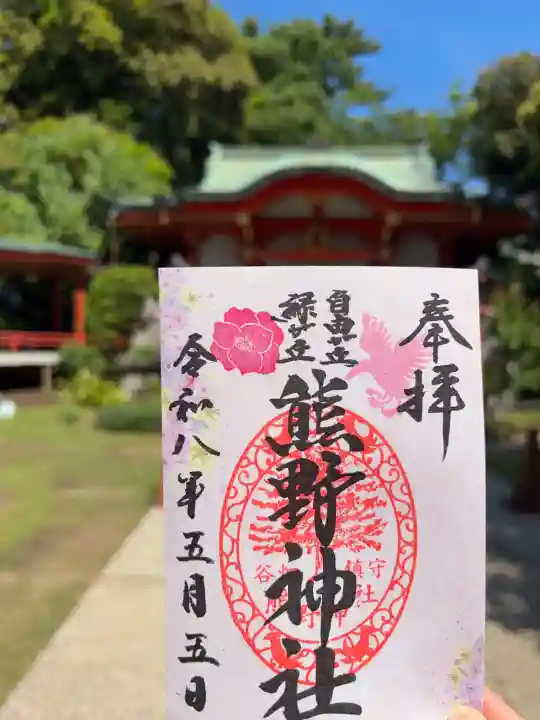 奉拝
自由が丘
緑が丘
熊野神社
令和八年五月五日
谷畑 鎮守
熊野神社